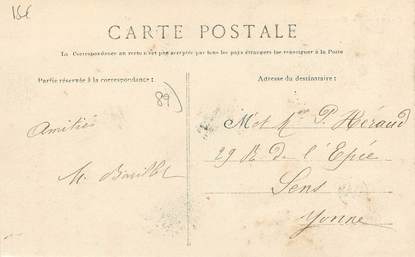 15€
CARTE POSTALE
La Correspondance au recto n'est pas acceptée par tous les pays étrangers (se renseigner à la Poste)
Partie réservée à la correspondance :
89
Amitiés
Adresse du destinataire :
M et Mme P. Héraud
29 R de l'Epée
Sens
Yonne